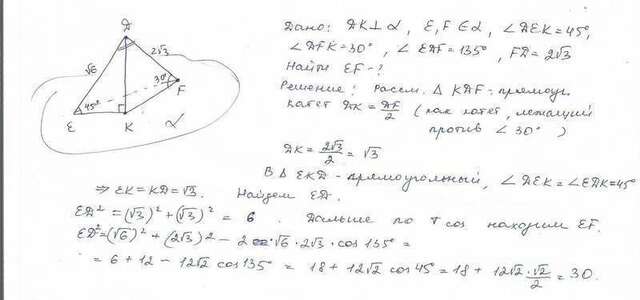 Дано: DK⊥α, E, F ∈ α, ∠DEK = 45°,
∠DFK = 30°, ∠EDF = 135°, FD = 2√3
Найти EF - ?
Решение: Рассм. Δ KDF - прямоуг.
катет DK = DF/2 (как катет, лежащий
против ∠ 30°)
DK = 2√3/2 = √3
В Δ EKD - прямоугольный, ∠DEK = ∠EDK = 45°
⇒ EK = KD = √3. Найдем ED.
ED² = (√3)² + (√3)² = 6. Дальше по т cos находим EF.
ED² = (√6)² + (2√3)² - 2 √6 · 2√3 · cos 135° =
= 6 + 12 - 12√2 cos 135° = 18 + 12√2 cos 45° = 18 + 12√2·√2/2 = 30.
D
√6
2√3
30°
F
45°
E
K
α